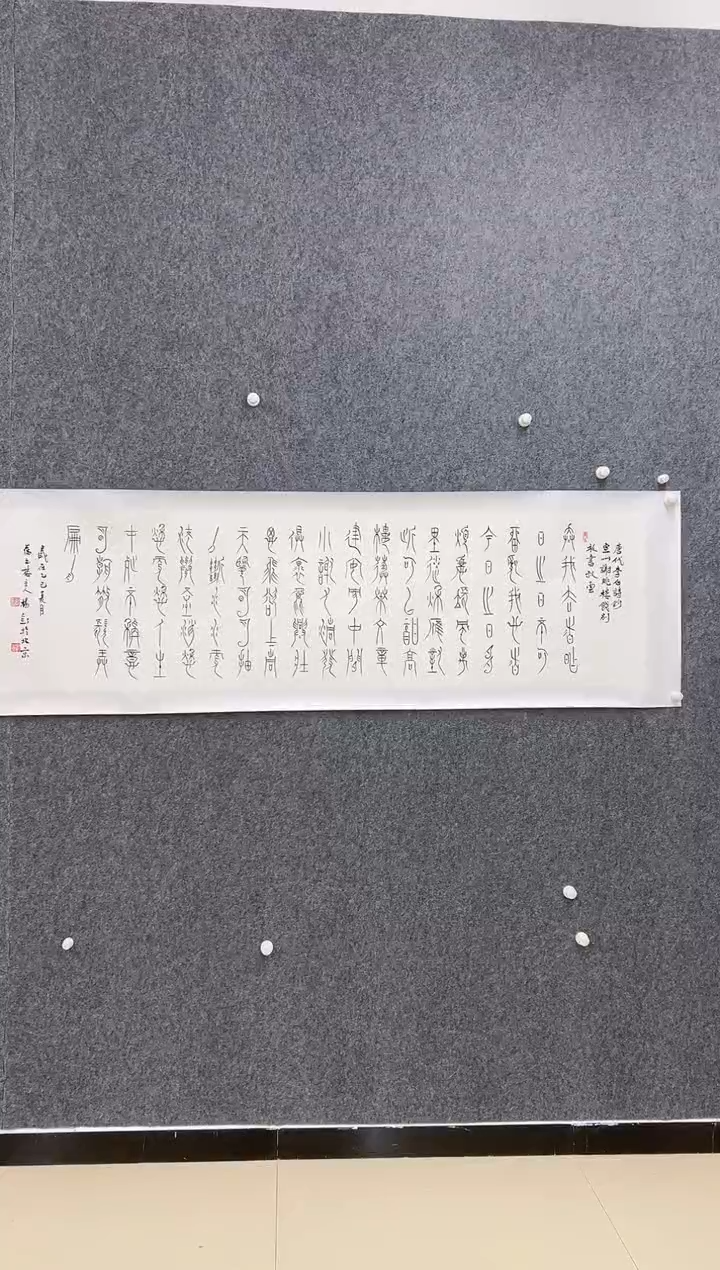 唐代李白詩鈔
宣州謝朓樓餞別
校書叔雲
棄我去者昨
日之日不可
留亂我心者
今日之日多
煩憂長風萬
里送秋雁對
此可以酣高
樓蓬萊文章
建安骨中間
小謝又清發
俱懷逸興壯
思飛欲上青
天攬明月抽
刀斷水水更
流舉杯消愁
愁更愁人生
在世不稱意
明朝散髮弄
扁舟
歲在乙巳夏月
主人楊於北京